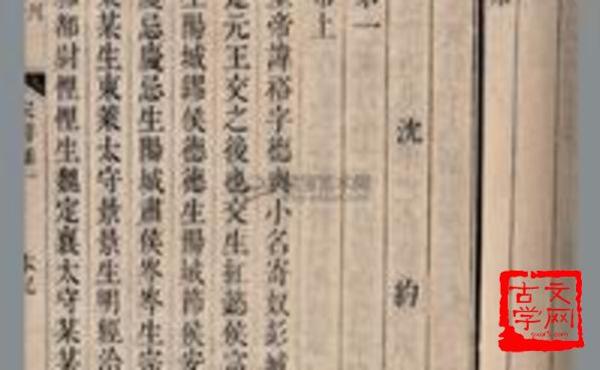 沈約
第一
帝上
皇帝諱裕字德輿小名寄奴彭城
元王交之後也交生紅懿侯富
生陽城繆侯德德生陽城節侯安
慶忌慶忌生陽城肅侯岑岑生宗
某生東萊太守景景生明經洽
都尉悝悝生魏定襄太守某某
本紀
古文
学网